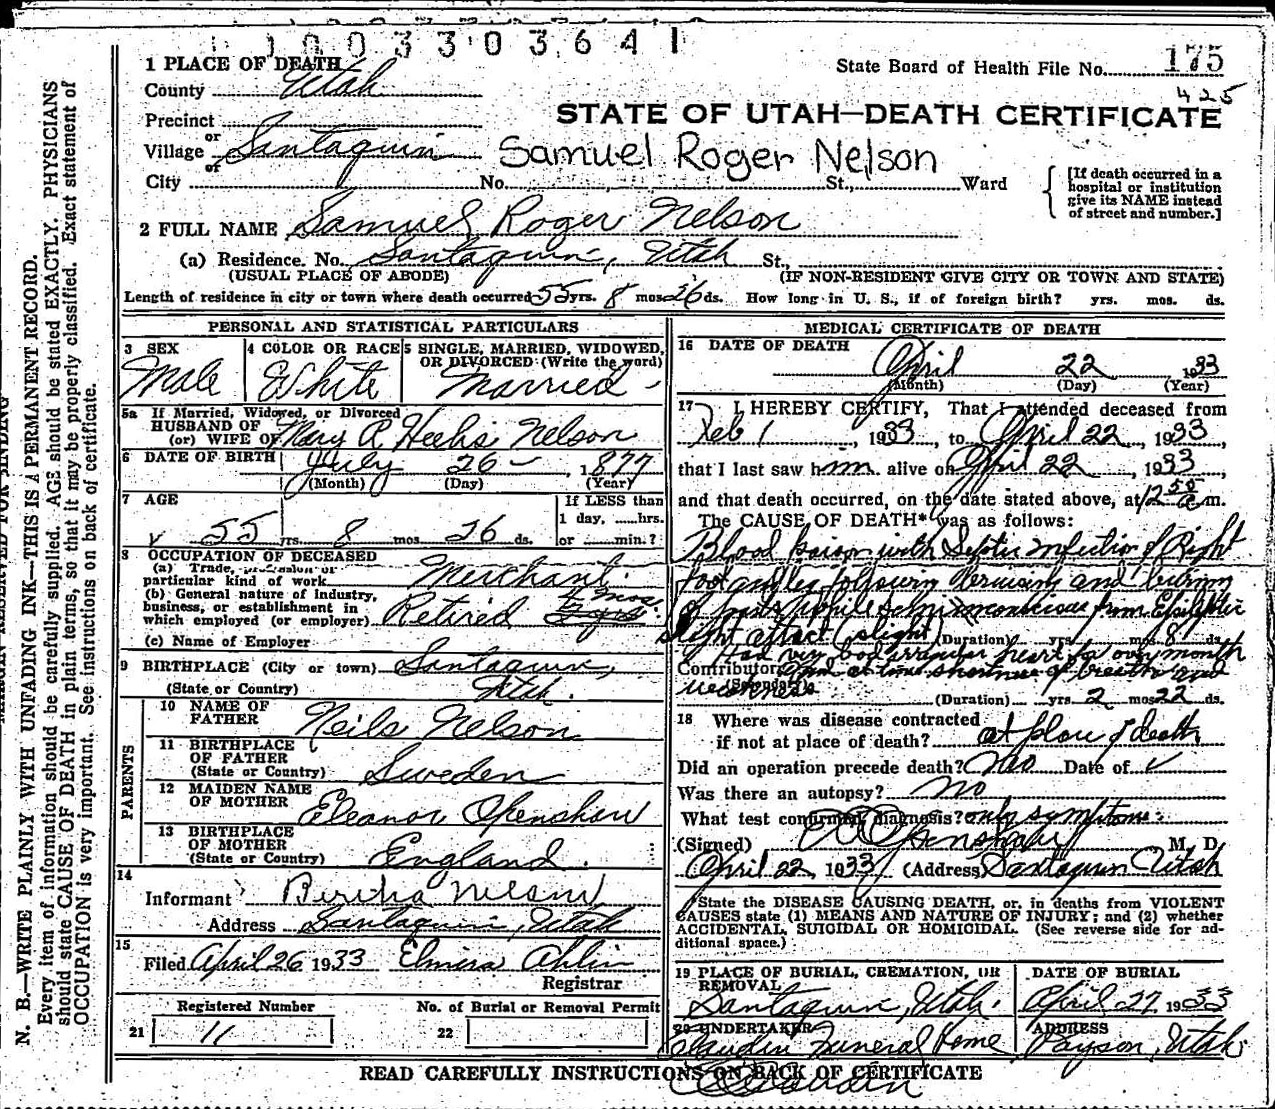 1003303641
1 PLACE OF DEATH
State Board of Health File No. 175
County Utah
425
STATE OF UTAH—DEATH CERTIFICATE
Precinct
or
Village Santaquin
Samuel Roger Nelson
or
City No. St., Ward
[If death occurred in a hospital or institution give its NAME instead of street and number.]
2 FULL NAME Samuel Roger Nelson
(a) Residence. No. Santaquin, Utah St.,
(USUAL PLACE OF ABODE) (IF NON-RESIDENT GIVE CITY OR TOWN AND STATE)
Length of residence in city or town where death occurred 55 yrs. 8 mos. 26 ds. How long in U. S., if of foreign birth? yrs. mos. ds.
N. B.—WRITE PLAINLY WITH UNFADING INK—THIS IS A PERMANENT RECORD.
Every item of information should be carefully supplied. AGE should be stated EXACTLY. PHYSICIANS
should state CAUSE OF DEATH in plain terms, so that it may be properly classified. Exact statement of
OCCUPATION is very important. See instructions on back of certificate.
PERSONAL AND STATISTICAL PARTICULARS
3 SEX
Male
4 COLOR OR RACE
White
5 SINGLE, MARRIED, WIDOWED,
OR DIVORCED (Write the word)
Married
5a If Married, Widowed, or Divorced
HUSBAND OF
(or) WIFE OF Mary R Nelson
6 DATE OF BIRTH July 26 - 1877
(Month) (Day) (Year)
7 AGE
55 yrs. 8 mos. 26 ds.
If LESS than
1 day, hrs.
or min.?
8 OCCUPATION OF DECEASED
(a) Trade, profession or
particular kind of work Merchant
(b) General nature of industry,
business, or establishment in
which employed (or employer) Retired mos.
(c) Name of Employer
9 BIRTHPLACE (City or town) Santaquin,
(State or Country) Utah.
PARENTS
10 NAME OF
FATHER Neils Nelson
11 BIRTHPLACE
OF FATHER
(State or Country) Sweden
12 MAIDEN NAME
OF MOTHER Eleanor Openshaw
13 BIRTHPLACE
OF MOTHER
(State or Country) England.
14
Informant Bertha Nelson
Address Santaquin, Utah
15
Filed April 26 1933 Elmira Ahlin
Registrar
Registered Number
21 11
No. of Burial or Removal Permit
22
MEDICAL CERTIFICATE OF DEATH
16 DATE OF DEATH
April 22 1933
(Month) (Day) (Year)
17 I HEREBY CERTIFY, That I attended deceased from
Feb 1, 1933, to April 22, 1933,
that I last saw him alive on April 22, 1933,
and that death occurred, on the date stated above, at 12 50 a m.
The CAUSE OF DEATH* was as follows:
Blood Poison with Septic infection of Right
foot and leg following bruising and burning
of parts while semiunconscious from
slight attack (slight) (Duration) yrs. mos. 8 ds.
Had very bad irregular heart for over month
Contributory and at times shortness of breath and
(Secondary)
weakness (Duration) yrs. 2 mos. 22 ds.
18 Where was disease contracted
if not at place of death? at place of death
Did an operation precede death? no Date of
Was there an autopsy? no
What test confirmed diagnosis? only symptoms
(Signed) Openshaw M. D.
April 22, 1933 (Address) Santaquin Utah
State the DISEASE CAUSING DEATH, or, in deaths from VIOLENT
CAUSES state (1) MEANS AND NATURE OF INJURY; and (2) whether
ACCIDENTAL, SUICIDAL OR HOMICIDAL. (See reverse side for ad-
ditional space.)
19 PLACE OF BURIAL, CREMATION, OR
REMOVAL
Santaquin, Utah.
DATE OF BURIAL
April 27 1933
20 UNDERTAKER
Claudin Funeral Home
ADDRESS
Payson, Utah
READ CAREFULLY INSTRUCTIONS ON BACK OF CERTIFICATE